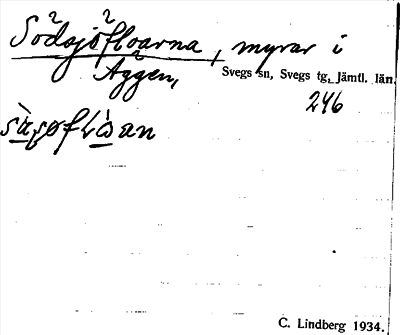 Sodsjöfloarna, myrar i
Äggen,
Svegs sn, Svegs tg, Jämtl. län.
246
C. Lindberg 1934.